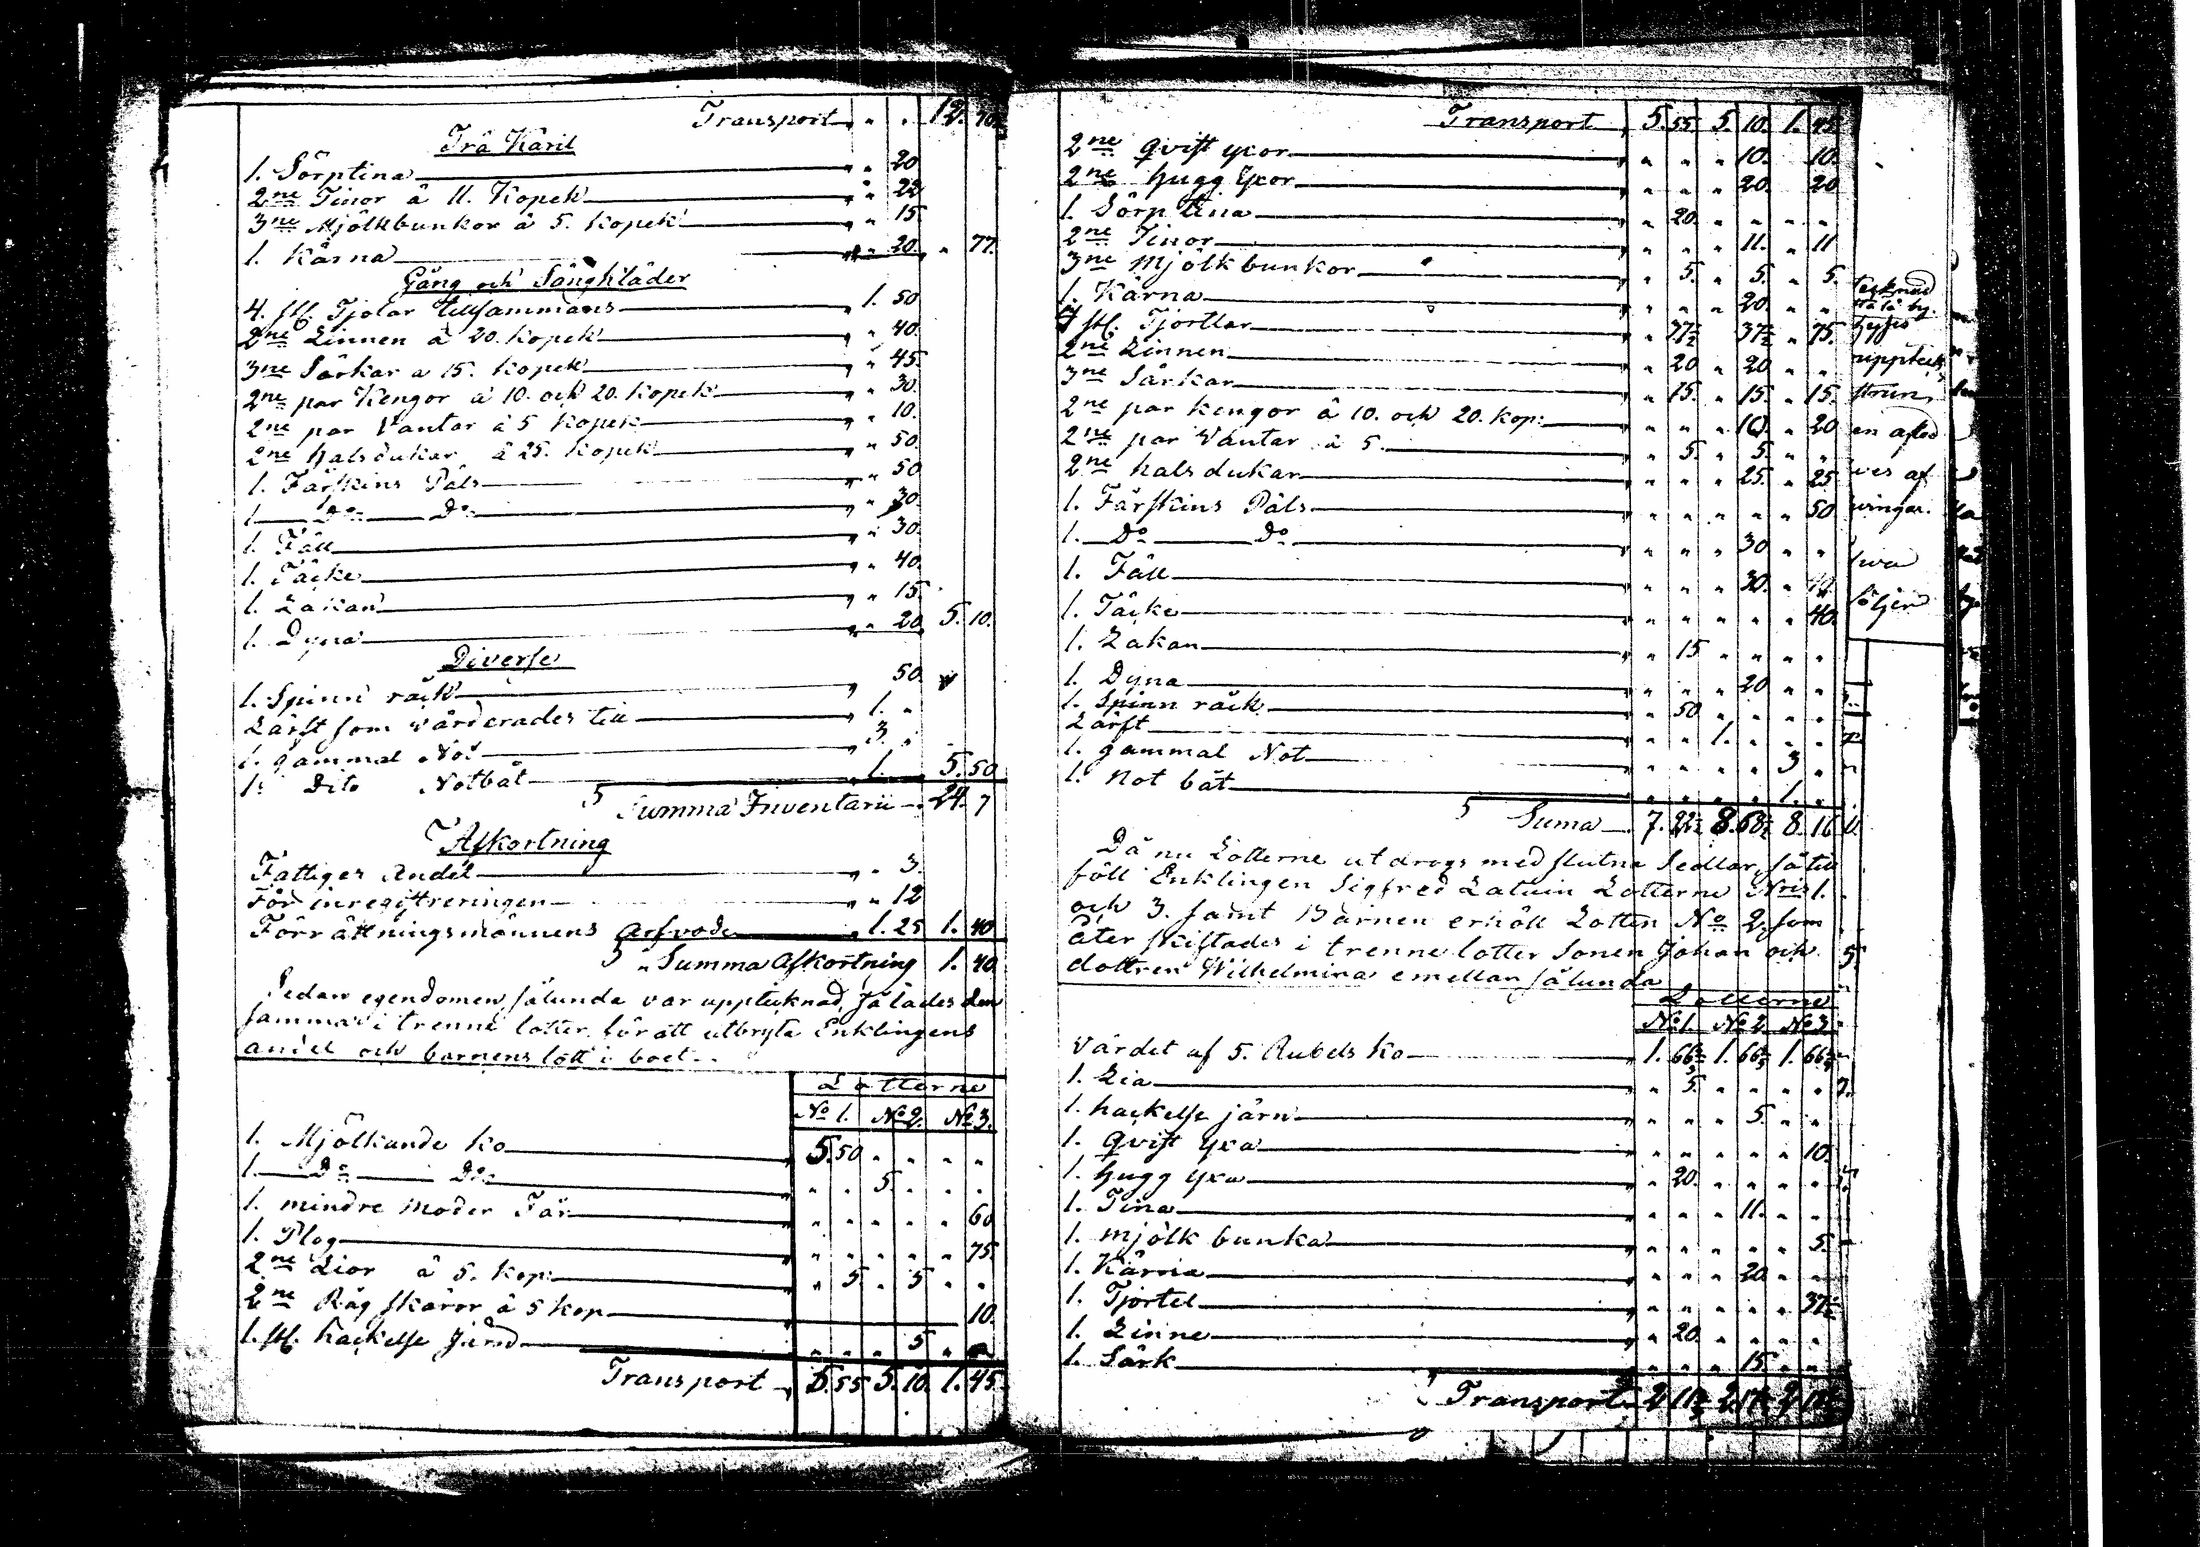 Transport „ „ „ 12. 70.
Trä Käril
1. Sörptina „ „ 20
2ne Tinor â 11. Kopek „ „ 22
3ne Mjölkbunkor â 5. Kopek „ „ 15
1. Kärna „ „ 20. „ 77.
Gång och Sängkläder
4. st. Tjolar tillsammans „ 1. 50
2ne Linnen â 20. Kopek „ „ 40.
3ne Särkar a 15. Kopek „ „ 45.
2ne par Kengor â 10. och 20. Kopek „ „ 30.
2ne par Vantar â 5 Kopek „ „ 10.
2ne halsdukar â 25. Kopek „ „ 50.
1. Fårskins Päls „ „ 50
1. Do Do „ „ 30.
1. Fäll „ „ 30.
1. Täcke „ „ 40.
1. Lakan „ „ 15.
1. Dyna „ „ 20 5. 10.
Diverse
1. Spinn räck „ 50.
Lärft som värderades till „ 1. „
1. gammal Not „ 3. „
1. Dito Notbåt „ 1. „ 5. 50
Summa Inventarii „ 24. 7
Afkortning
Fattiges Andel „ „ 3.
För inregistreringen „ „ 12
Förrättningsmännens Arfvode „ 1. 25 1. 40
Summa Afkortning 1. 40
Sedan egendomen sålunda var upptecknad, så lades den
samma i trenne lotter för att utbryta Enklingens
andel och barnens lott i boet.
Lotterne
No 1. No 2. No 3.
1. Mjölkande ko 5. 50 „ „ „ „
1. Do Do „ „ 5. „ „ „
1. mindre Moder Får „ „ „ „ „ 60
1. Plog „ „ „ „ „ 75.
2ne Lior â 5. kop: „ 5 „ 5 „ „
2ne Råg skäror â 5 kop 10.
1. st. hackelse Järn „ „ „ 5 „ „
Transport 5. 55 5. 10. 1. 45.
Transport 5. 55 5. 10. 1. 45
2ne qvist yxor „ „ „ 10. 10.
2ne hugg yxor „ „ „ 20. 20
1. Sörp tina „ 20. „ „ „ „
2ne Tinor „ „ „ 11. „ 11
3ne Mjölkbunkor „ 5. „ 5. „ 5.
1. Kärna „ „ „ 20. „ „
4 st. Tjortlar „ 37½ 37½ „ 75.
2ne Linnen „ 20 „ 20 „ „
3ne Särkar „ 15. „ 15. „ 15.
2ne par kengor â 10. och 20. kop: „ „ „ 10. „ 20
2ne par Vantar â 5. „ 5. „ 5. „ „
2ne halsdukar „ „ „ 25. „ 25
1. Fårskins Päls „ „ „ „ „ 50
1. Do Do „ „ „ 30 „ „
1. Fäll „ „ „ 30. „
1. Täcke „ „ „ „ „ 40.
1. Lakan „ 15 „ „ „ „
1. Dyna „ „ „ 20 „ „
1. Spinn räck „ 50 „ „ „ „
Lärft „ „ 1. „ „ „
1. gammal Not „ „ „ „ 3 „
1. Not båt „ „ „ „ 1. „
Suma 7. 22½ 8. 68½ 8. 16
Då nu Lotterne utdrogs med slutne Sedlar, så till
föll Enklingen Sigfred Latuin Lotterne Nris 1.
och 3. samt Barnen erhöll Lotten No 2. som
åter skiftades i trenne lotter Sonen Johan och
dottren Wilhelmina emellan sålunda
Lotterne
No 1. No 2. No 3.
Värdet af 5. Rubels Ko 1. 66⅔ 1. 66⅔ 1. 66⅔
1. Lia „ 5. „ „ „ „
1. hackelse järn „ „ „ 5. „ „
1. Qvist yxa „ „ „ „ „ 10.
1. hugg yxa „ 20. „ „ „ „
1. Tina „ „ „ 11. „ „
1. mjölk bunka „ „ „ „ „ 5.
1. Kärna „ „ „ 20. „ „
1. Tjortel „ „ „ „ „ 37½
1. Linne „ 20. „ „ „ „
1. Särk „ „ „ 15 „ „
Transport